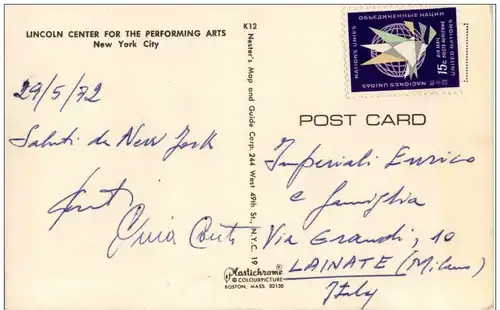 LINCOLN CENTER FOR THE PERFORMING ARTS
New York City
29/5/72
Saluti da New York
K12
Nester's Map and Guide Corp. 244 West 49th St., N.Y.C. 19
Plastichrome®
© COLOURPICTURE
BOSTON, MASS. 02130
ОБЪЕДИНЕННЫЕ НАЦИИ
NATIONS UNIES
NACIONES UNIDAS
UNITED NATIONS
AIR MAIL
POSTE AERIENNE
15c
POST CARD
Imperiali Enrico
e famiglia
Via Grandi, 10
LAINATE (Milano)
Italy